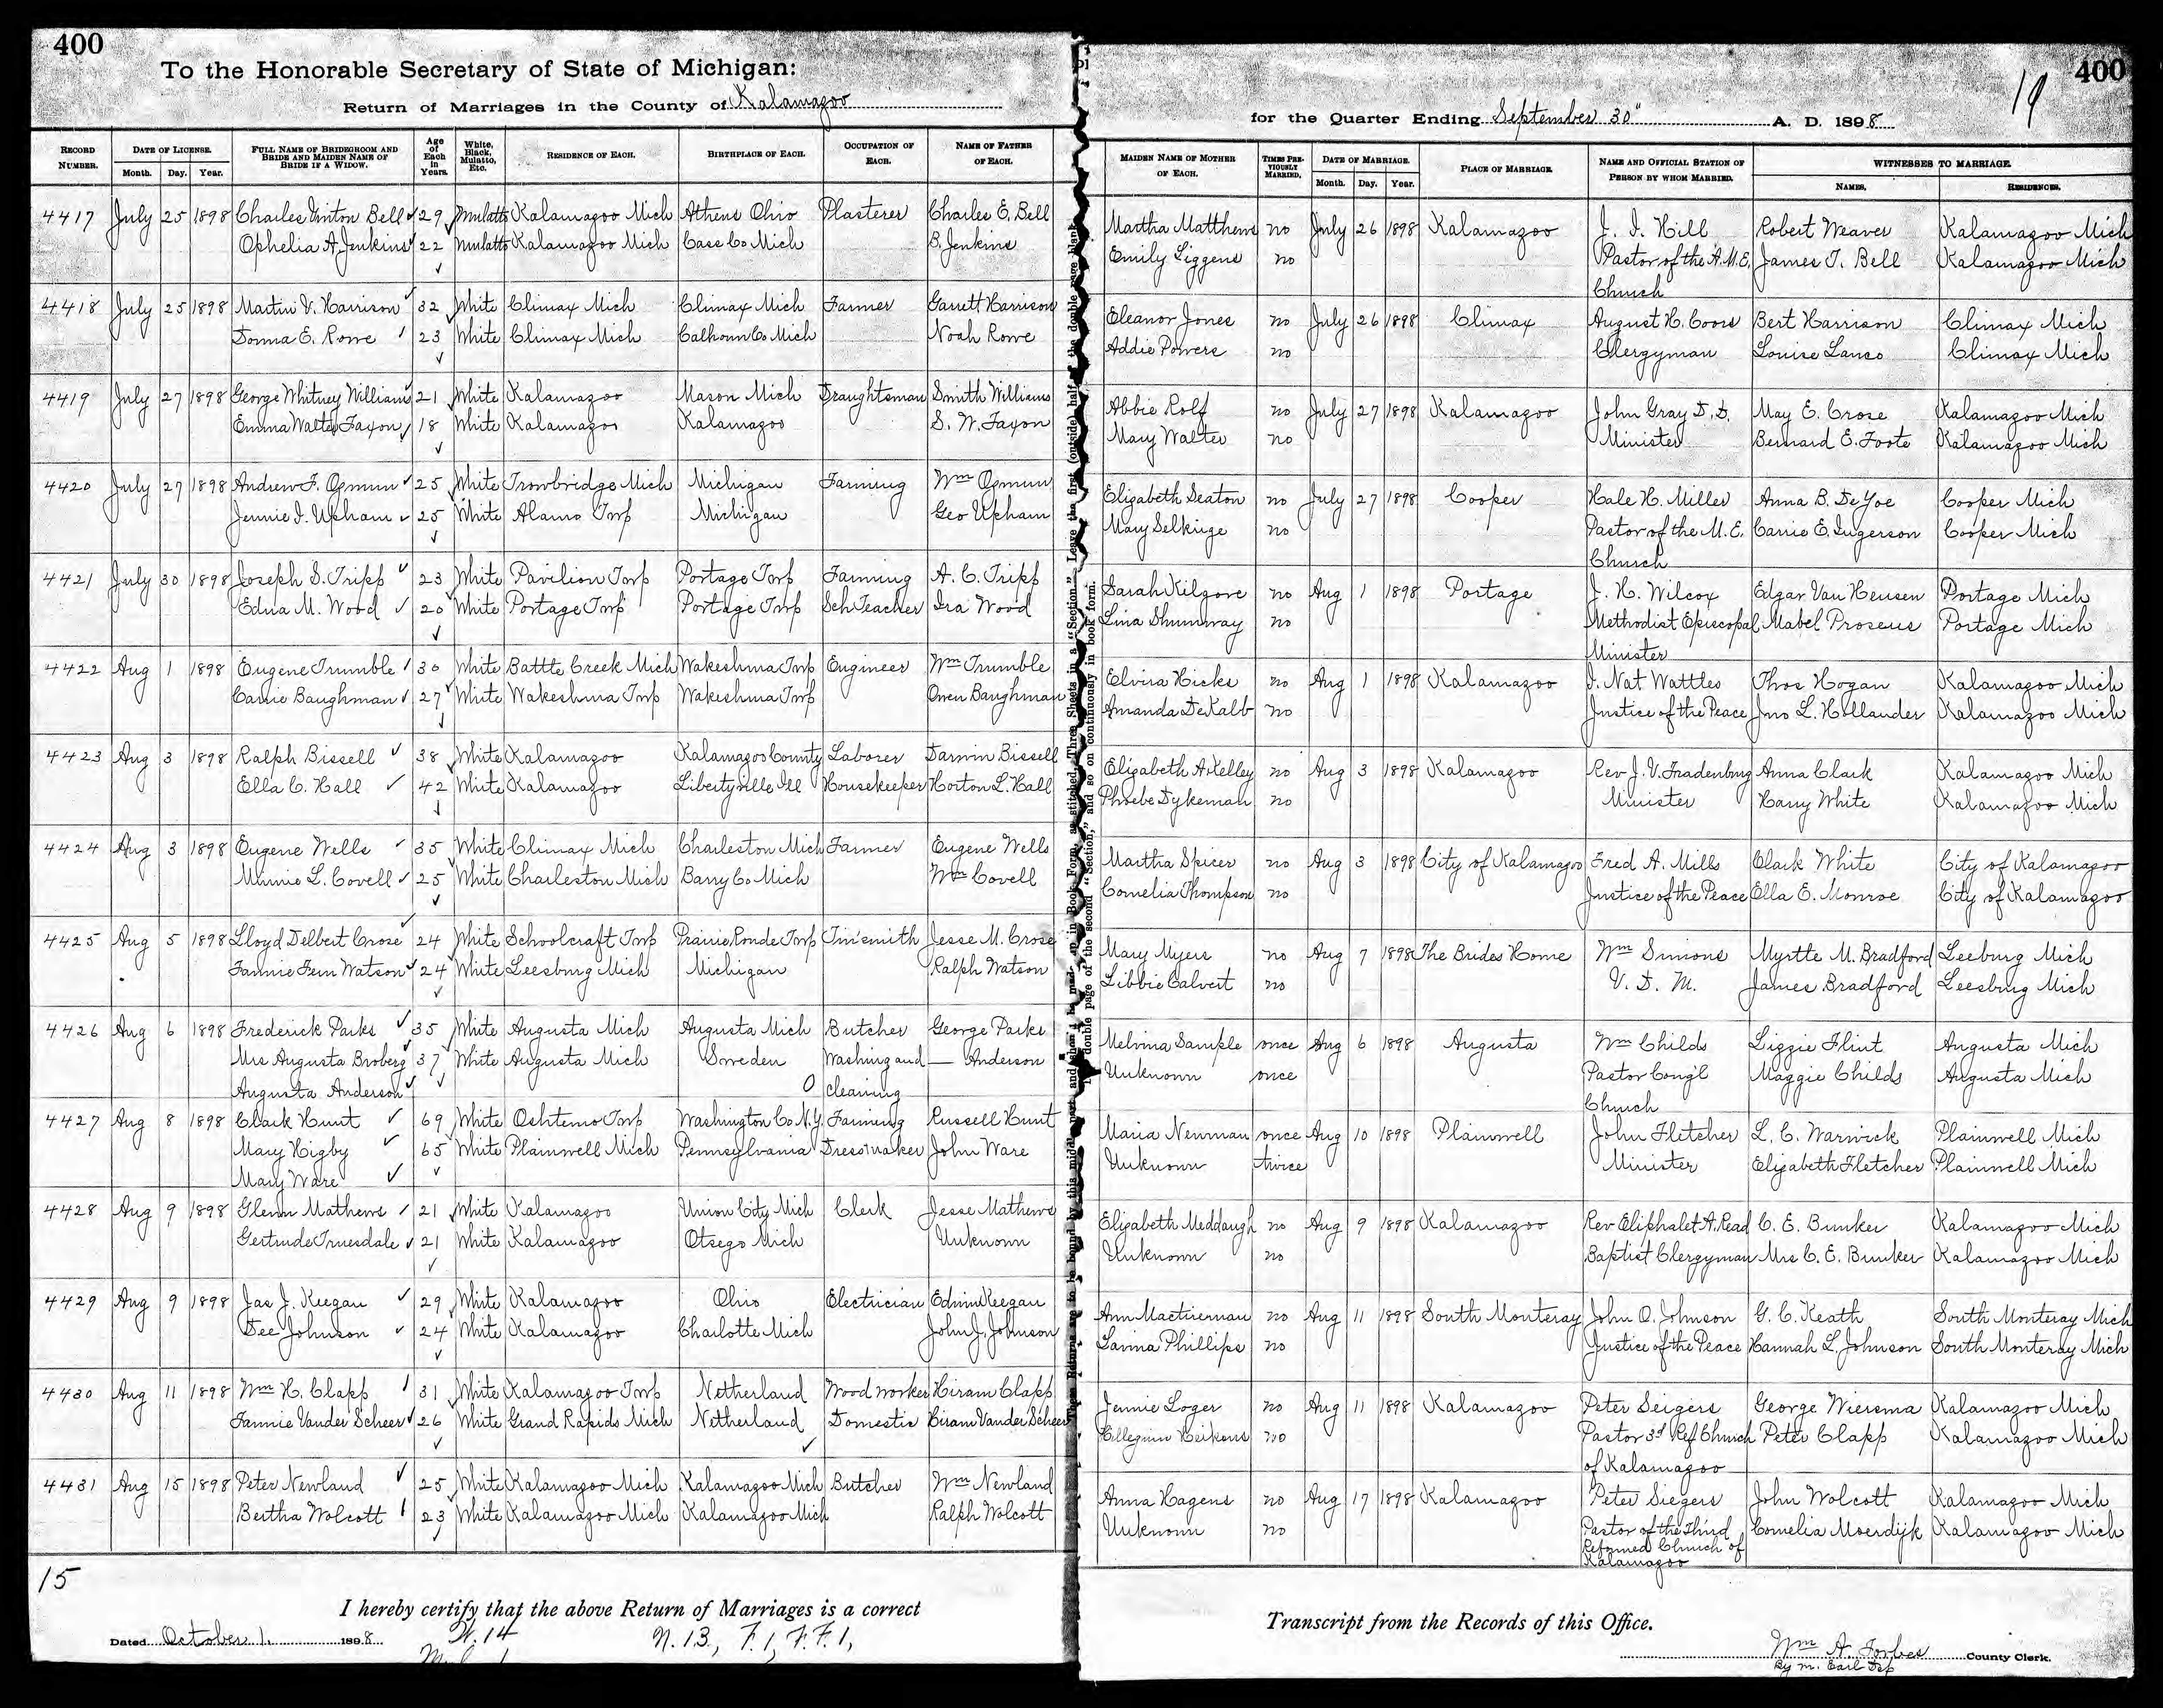 400
To the Honorable Secretary of State of Michigan:
Return of Marriages in the County of Kalamazoo
RECORD NUMBER. DATE OF LICENSE. Month. Day. Year. FULL NAME OF BRIDEGROOM AND BRIDE AND MAIDEN NAME OF BRIDE IF A WIDOW. Age of Each in Years. White, Black, Mulatto, Etc. RESIDENCE OF EACH. BIRTHPLACE OF EACH. OCCUPATION OF EACH. NAME OF FATHER OF EACH.
4417 July 25 1898 Charles Vinton Bell 29 Mulatto Kalamazoo Mich Athens Ohio Plasterer Charles E. Bell
Ophelia A. Jenkins 22 Mulatto Kalamazoo Mich Cass Co Mich B. Jenkins
4418 July 25 1898 Martin V. Harrison 32 White Climax Mich Climax Mich Farmer Garrett Harrison
Donna E. Rowe 23 White Climax Mich Calhoun Co Mich Noah Rowe
4419 July 27 1898 George Whitney Williams 21 White Kalamazoo Mason Mich Draughtsman Smith Williams
Emma Walter Faxon 18 White Kalamazoo Kalamazoo S. W. Faxon
4420 July 27 1898 Andrew F. Opmun 25 White Trowbridge Mich Michigan Farming Wm Opmun
Jennie I. Upham 25 White Alamo Twp Michigan Geo Upham
4421 July 30 1898 Joseph S. Tripp 23 White Pavilion Twp Portage Twp Farming A. C. Tripp
Edna M. Wood 20 White Portage Twp Portage Twp Sch Teacher Ira Wood
4422 Aug 1 1898 Eugene Trumble 30 White Battle Creek Mich Wakeshma Twp Engineer Wm Trumble
Carrie Baughman 27 White Wakeshma Twp Wakeshma Twp Owen Baughman
4423 Aug 3 1898 Ralph Bissell 38 White Kalamazoo Kalamazoo County Laborer Darwin Bissell
Ella C. Hall 42 White Kalamazoo Libertyville Ill Housekeeper Horton L. Hall
4424 Aug 3 1898 Eugene Wells 35 White Climax Mich Charleston Mich Farmer Eugene Wells
Minnie L. Covell 25 White Charleston Mich Barry Co Mich Wm Covell
4425 Aug 5 1898 Lloyd Delbert Crose 24 White Schoolcraft Twp Prairie Ronde Twp Tinsmith Jesse M. Crose
Fannie Fern Watson 24 White Leesburg Mich Michigan Ralph Watson
4426 Aug 6 1898 Frederick Parks 35 White Augusta Mich Augusta Mich Butcher George Parks
Mrs Augusta Broberg 37 White Augusta Mich Sweden Washing and — Anderson
Augusta Anderson 0 cleaning
4427 Aug 8 1898 Clark Hunt 69 White Oshtemo Twp Washington Co N.Y. Farming Russell Hunt
Mary Higby 65 White Plainwell Mich Pennsylvania Dressmaker John Ware
Mary Ware
4428 Aug 9 1898 Glenn Mathews 21 White Kalamazoo Union City Mich Clerk Jesse Mathews
Gertrude Truesdale 21 White Kalamazoo Otsego Mich Unknown
4429 Aug 9 1898 Jas J. Keegan 29 White Kalamazoo Ohio Electrician Edwin Keegan
Dee Johnson 24 White Kalamazoo Charlotte Mich John J. Johnson
4430 Aug 11 1898 Wm H. Clapp 31 White Kalamazoo Twp Netherland Wood worker Hiram Clapp
Fannie Vander Scheer 26 White Grand Rapids Mich Netherland Domestic Hiram Vander Scheer
4431 Aug 15 1898 Peter Newland 25 White Kalamazoo Mich Kalamazoo Mich Butcher Wm Newland
Bertha Wolcott 23 White Kalamazoo Mich Kalamazoo Mich Ralph Wolcott
15
I hereby certify that the above Return of Marriages is a correct
Dated October 1. 1898
W. 14 N. 13, F. 1, F. F. 1,
400
19
for the Quarter Ending September 30" A. D. 1898
MAIDEN NAME OF MOTHER OF EACH. TIMES PREVIOUSLY MARRIED. DATE OF MARRIAGE. Month. Day. Year. PLACE OF MARRIAGE. NAME AND OFFICIAL STATION OF PERSON BY WHOM MARRIED. WITNESSES TO MARRIAGE. NAMES. RESIDENCES.
Martha Matthews no July 26 1898 Kalamazoo J. I. Hill Robert Weaver Kalamazoo Mich
Emily Liggens no Pastor of the A.M.E. James T. Bell Kalamazoo Mich
Church
Eleanor Jones no July 26 1898 Climax August H. Coors Bert Harrison Climax Mich
Addie Powers no Clergyman Louise Lanco Climax Mich
Abbie Rolf no July 27 1898 Kalamazoo John Gray D. D. May E. Crose Kalamazoo Mich
Mary Walter no Minister Bernard E. Foote Kalamazoo Mich
Elizabeth Seaton no July 27 1898 Cooper Hale H. Miller Anna B. DeYoe Cooper Mich
Mary Selkirge no Pastor of the M. E. Carrie E. Ingerson Cooper Mich
Church
Sarah Kilgore no Aug 1 1898 Portage J. H. Wilcox Edgar Van Heusen Portage Mich
Lina Shumway no Methodist Episcopal Mabel Proseus Portage Mich
Minister
Elvira Hicks no Aug 1 1898 Kalamazoo I. Nat Wattles Thos Hogan Kalamazoo Mich
Amanda DeKalb no Justice of the Peace Jno L. Hollander Kalamazoo Mich
Elizabeth A. Kelley no Aug 3 1898 Kalamazoo Rev J. V. Fradenburg Anna Clark Kalamazoo Mich
Phoebe Dykeman no Minister Harry White Kalamazoo Mich
Martha Spicer no Aug 3 1898 City of Kalamazoo Fred A. Mills Clark White City of Kalamazoo
Cornelia Thompson no Justice of the Peace Ella E. Monroe City of Kalamazoo
Mary Myers no Aug 7 1898 The Brides Home Wm Simons Myrtte M. Bradford Leeburg Mich
Libbie Calvert no V. D. M. James Bradford Leesburg Mich
Melvina Sample once Aug 6 1898 Augusta Wm Childs Lizzie Flint Augusta Mich
Unknown once Pastor Cong'l Maggie Childs Augusta Mich
Church
Maria Newman once Aug 10 1898 Plainwell John Fletcher L. C. Warwick Plainwell Mich
Unknown twice Minister Elizabeth Fletcher Plainwell Mich
Elizabeth Meddaugh no Aug 9 1898 Kalamazoo Rev Eliphalet A. Read C. E. Bunker Kalamazoo Mich
Unknown no Baptist Clergyman Mrs C. E. Bunker Kalamazoo Mich
Ann Mactierman no Aug 11 1898 South Monteray John O. Johnson G. C. Keath South Monteray Mich
Lavina Phillips no Justice of the Peace Hannah L. Johnson South Monteray Mich
Jennie Loger no Aug 11 1898 Kalamazoo Peter Seigers George Wiersma Kalamazoo Mich
no Pastor 3d Ref Church Peter Clapp Kalamazoo Mich
of Kalamazoo
Anna Hagens no Aug 17 1898 Kalamazoo Peter Siegers John Wolcott Kalamazoo Mich
Unknown no Pastor of the Third Cornelia Moerdijk Kalamazoo Mich
Reformed Church of
Kalamazoo
Transcript from the Records of this Office.
Wm A. Forbes County Clerk.
By M. Earl Dep